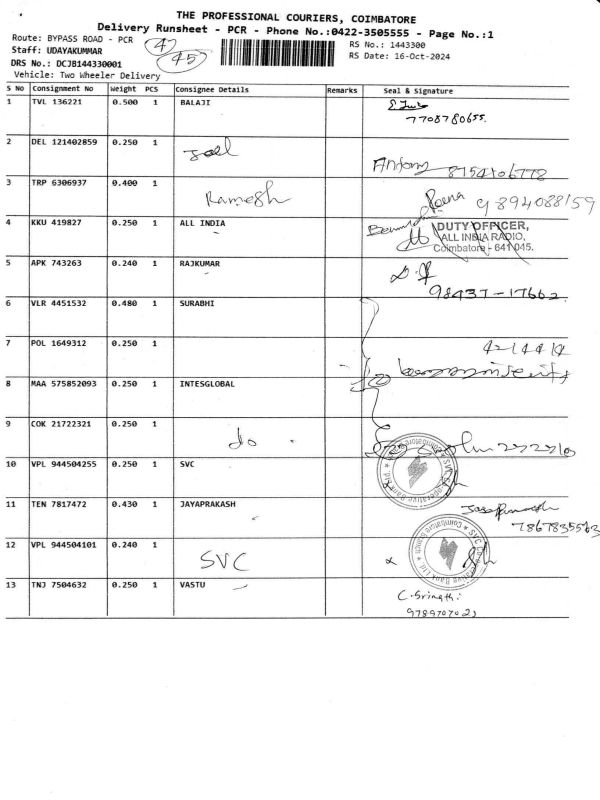 THE PROFESSIONAL COURIERS, COIMBATORE
Delivery Runsheet - PCR - Phone No.:0422-3505555 - Page No.:1
Route: BYPASS ROAD - PCR
Staff: UDAYAKUMMAR
DRS No.: DCJB144330001
Vehicle: Two Wheeler Delivery
45
RS No.: 1443300
RS Date: 16-Oct-2024
S No Consignment No Weight PCS Consignee Details Remarks Seal & Signature
1 TVL 136221 0.500 1 BALAJI
7708780655.
2 DEL 121402859 0.250 1 Joel
Antony 8754106778
3 TRP 6306937 0.400 1 Ramesh
Reena 9894088159
4 KKU 419827 0.250 1 ALL INDIA
DUTY OFFICER,
ALL INDIA RADIO,
Coimbatore - 641 045.
5 APK 743263 0.240 1 RAJKUMAR
98437-17662
6 VLR 4451532 0.480 1 SURABHI
7 POL 1649312 0.250 1
8 MAA 575852093 0.250 1 INTESGLOBAL
9 COK 21722321 0.250 1 do
10 VPL 944504255 0.250 1 SVC
11 TEN 7817472 0.430 1 JAYAPRAKASH
7867835563
12 VPL 944504101 0.240 1 SVC
13 TNJ 7504632 0.250 1 VASTU
C. Srinath: